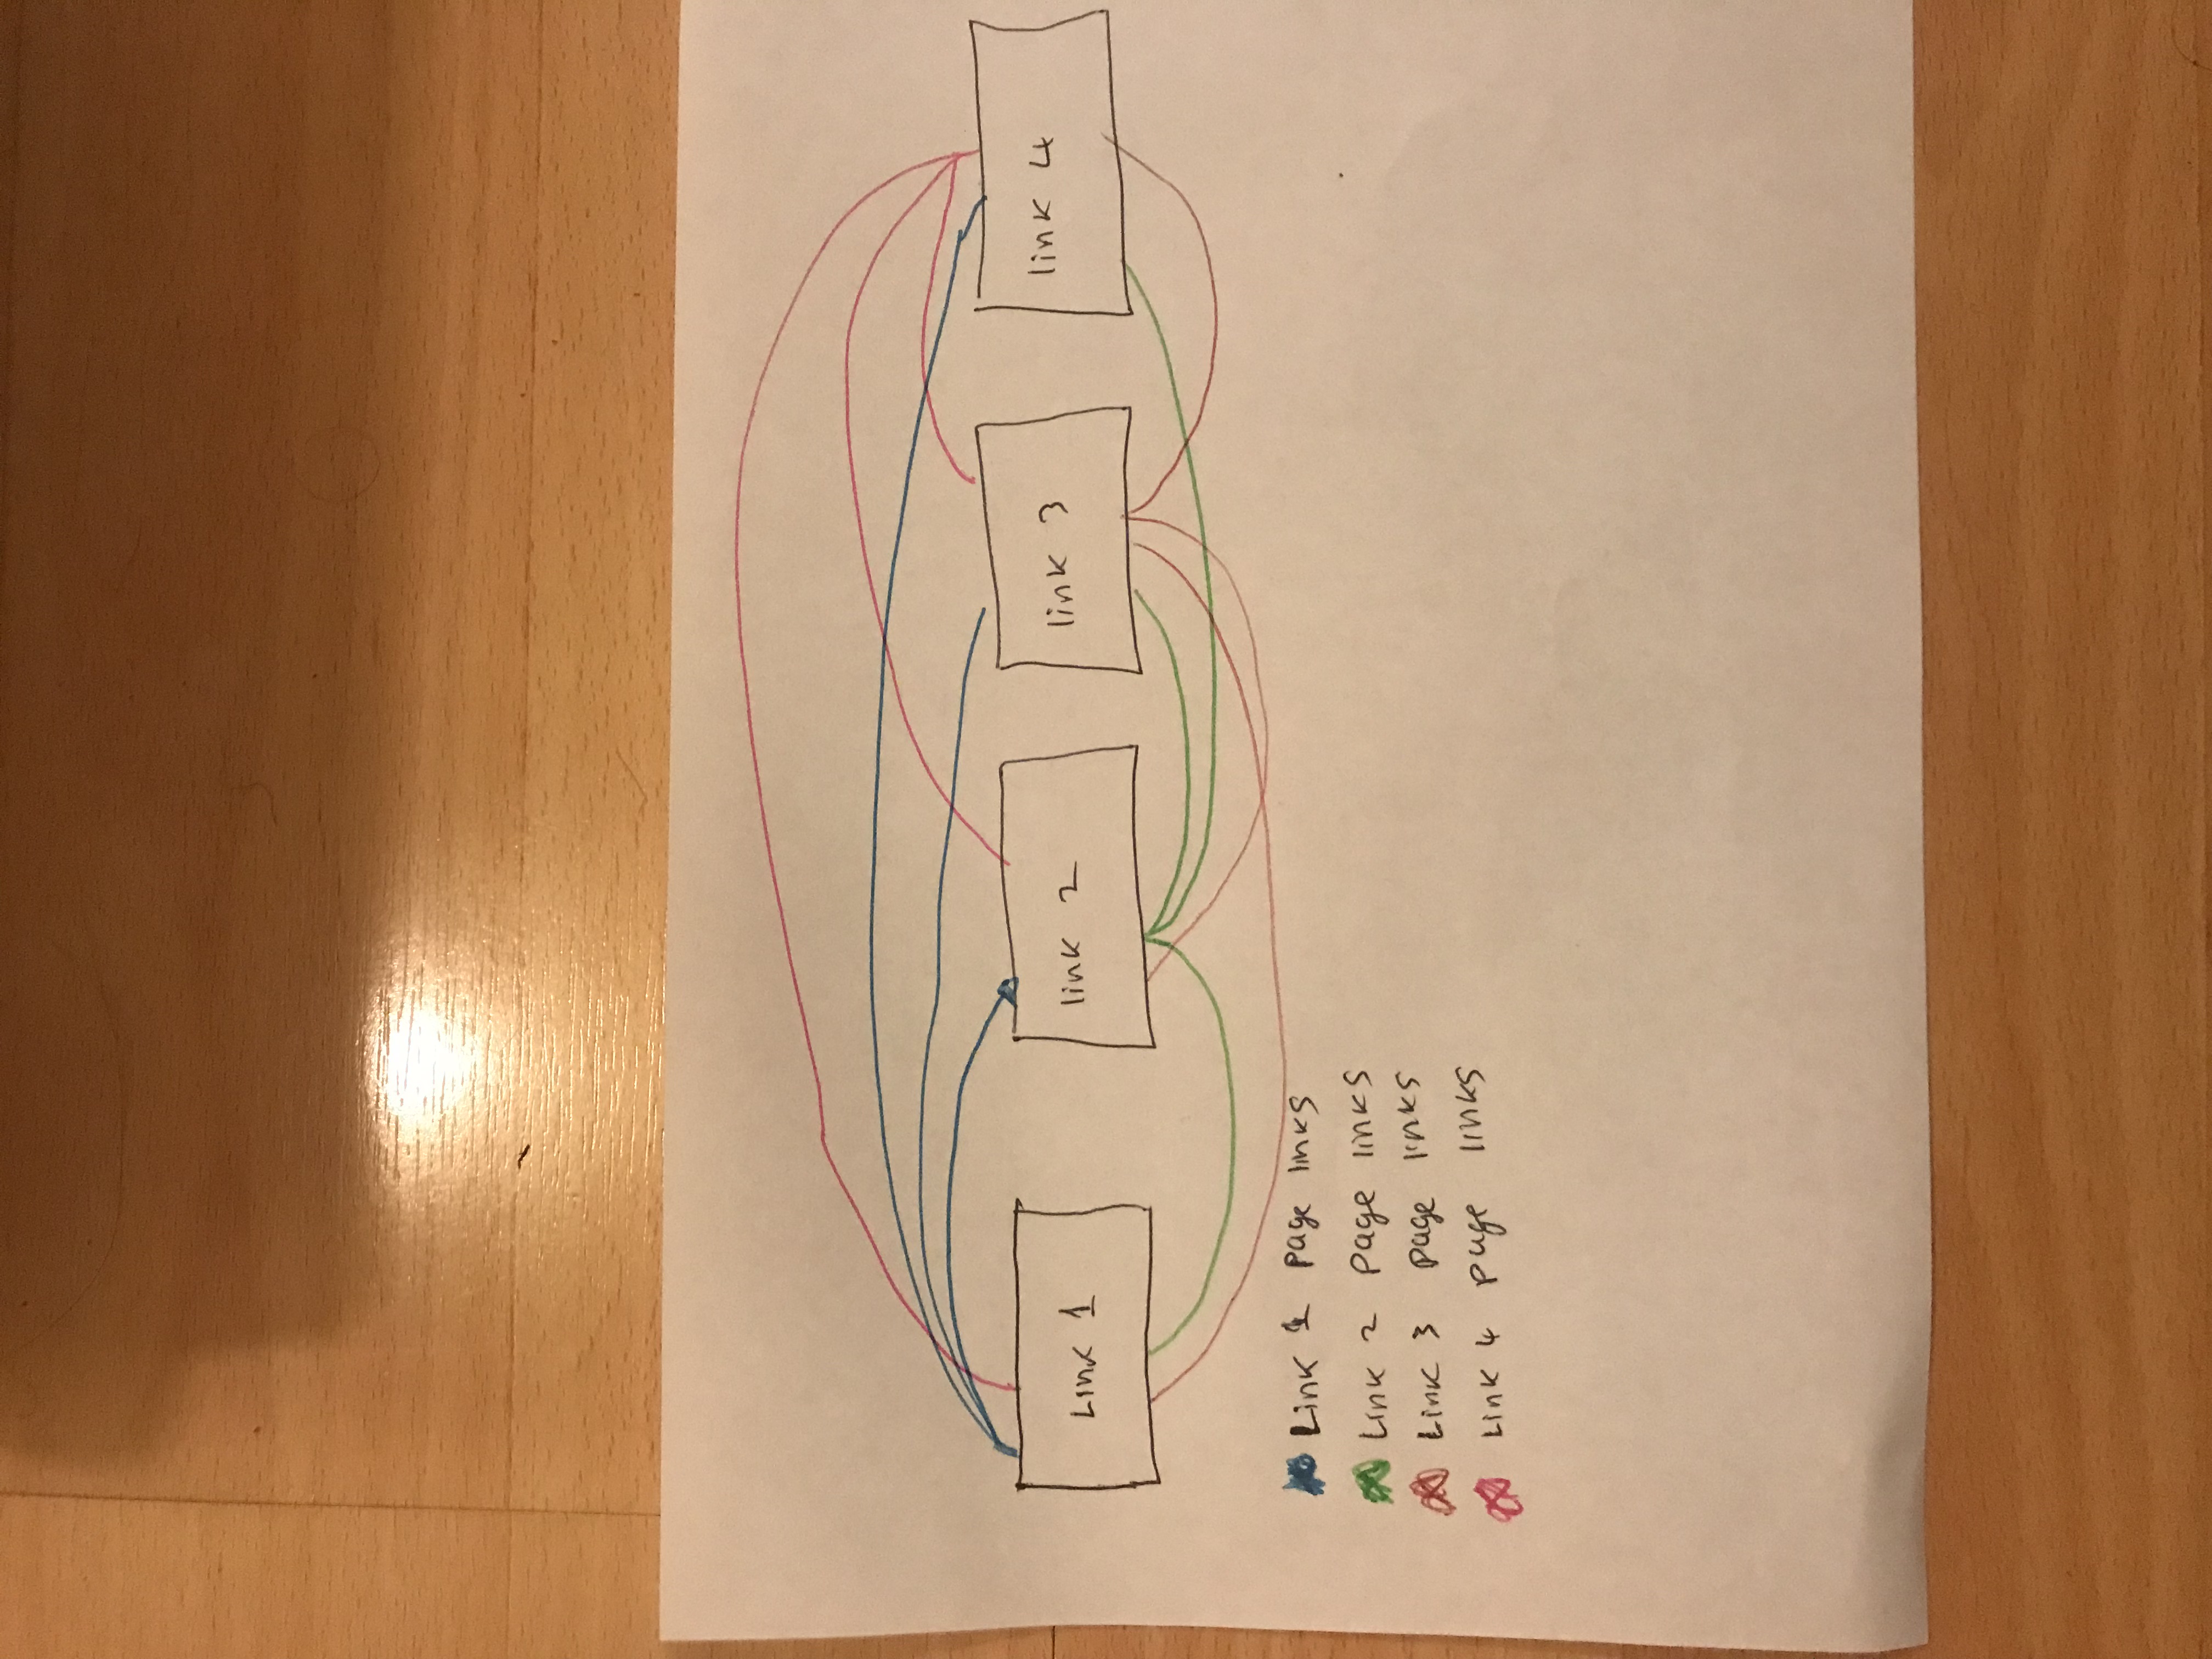 Link 1
link 2
link 3
link 4
Link 1 page links
Link 2 page links
Link 3 page links
Link 4 page links